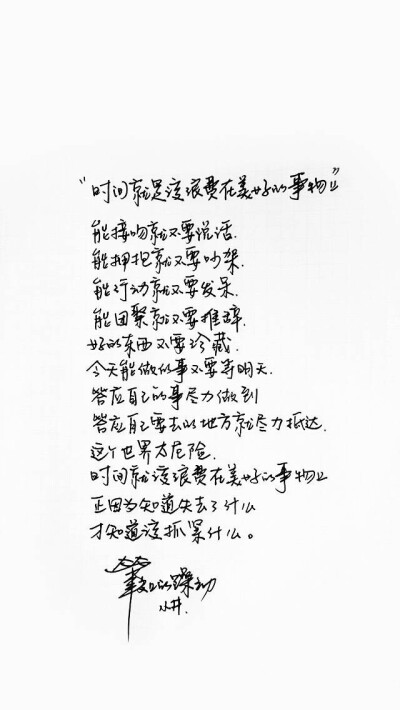 “时间就是该浪费在美好的事物上”
能接吻就不要说话.
能拥抱就不要吵架.
能行动就不要发呆.
能团聚就不要推辞.
好的东西不要珍藏.
今天能做的事不要等明天.
答应自己的事尽力做到
答应自己要去的地方就尽力抵达.
这个世界太危险.
时间就该浪费在美好的事物上
正因为知道失去了什么
才知道该抓紧什么。
的躁动